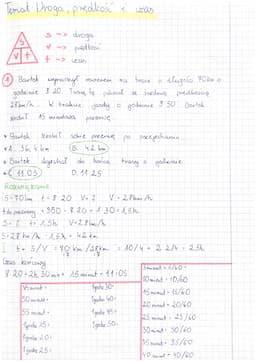 Temat: Droga, prędkość i czas
s --> droga
v --> prędkość
t --> czas
S
V t
1 Bartek wyruszył rowerem na trasę o długości 70 km o
godzinie 8:20. Trasę tę pokonał ze średnią prędkością
28 km/h. W trakcie jazdy o godzinie 9:50 Bartek
zrobił 15 minutową przerwę.
• Bartek zrobił sobie przerwę po przejechaniu
A. 36,4 km B. 42 km
• Bartek dojechał do końca trasy o godzinie
C. 11:05 D. 11:25
Rozwiązanie
S = 70 km t = 8:20 V = ? V = 28 km/h
t do przerwy = 9:50 - 8:20 = 1:30 = 1,5 h
S = ? t = 1,5 h V = 28 km/h
S = 28 km/h · 1,5 h = 42 km
t = S/V = 70 km / 28 km = 10/4 = 2 2/4 = 2,5 h
Czas końcowy
8:20 + 2h 30 min + 15 minut = 11:05
45 minut =
50 minut =
55 minut =
1 godz 15 =
1 godz 20 =
1 godz 25 =
1 godz 30 =
1 godz 40 =
1 godz 45 =
1 godz 50 =
5 minut = 5/60 =
10 minut = 10/60
15 minut = 15/60
20 minut = 20/60
25 minut = 25/60
30 minut = 30/60
35 minut = 35/60
40 minut = 40/60